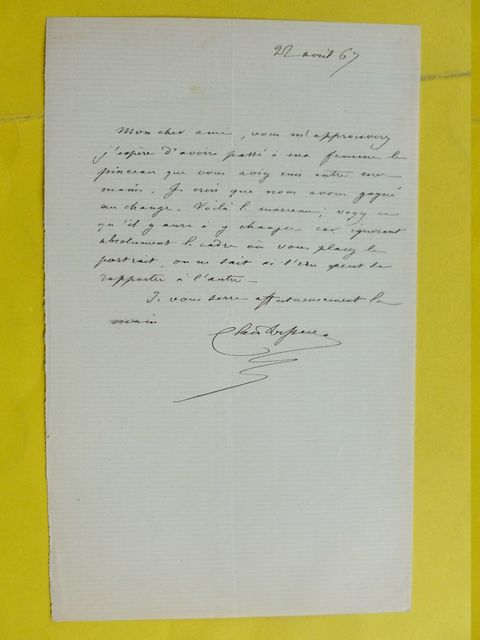 22 avril 67
Mon cher ami, vous m'approuverez
j'espère d'avoir passé à ma femme le
pinceau que vous aviez mis entre mes
mains. Je crois que nous avons gagné
au change. Voilà le morceau; voyez ce
qu'il y aura à y changer car ignorant
absolument le cadre où vous placez le
portrait, on ne sait si l'un peut se
rapporter à l'autre.
Je vous serre affectueusement la
main